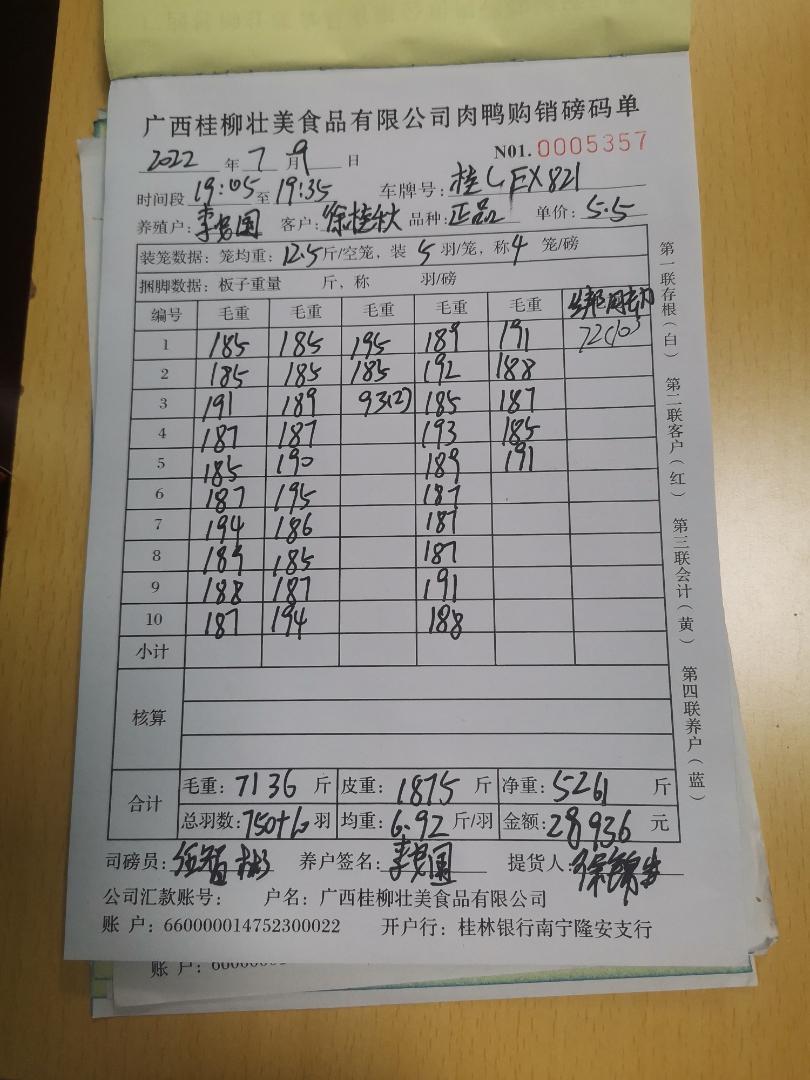 广西桂柳壮美食品有限公司肉鸭购销磅码单
2022 年 7 月 9 日 N01. 0005357
时间段 19:05 至 19:35 车牌号: 桂LEX821
养殖户: 李 国 客户: 徐桂秋 品种: 正品 单价: 5.5
装笼数据: 笼均重: 12.5 斤/空笼, 装 5 羽/笼, 称 4 笼/磅
捆脚数据: 板子重量 斤, 称 羽/磅
编号 毛重 毛重 毛重 毛重 毛重
1 185 185 195 189 191 72(10)
2 185 185 185 192 188
3 191 189 93(2) 185 187
4 187 187 193 185
5 185 190 189 191
6 187 195 187
7 194 186 187
8 189 185 187
9 188 187 191
10 187 194 188
小计
核算
合计 毛重: 7136 斤 皮重: 1875 斤 净重: 5261 斤
总羽数: 750+10 羽 均重: 6.92 斤/羽 金额: 28936 元
司磅员: 养户签名: 李 国 提货人:
公司汇款账号: 户名: 广西桂柳壮美食品有限公司
账 户: 660000014752300022 开户行: 桂林银行南宁隆安支行
第一联存根(白) 第二联客户(红) 第三联会计(黄) 第四联养户(蓝)
账 户: